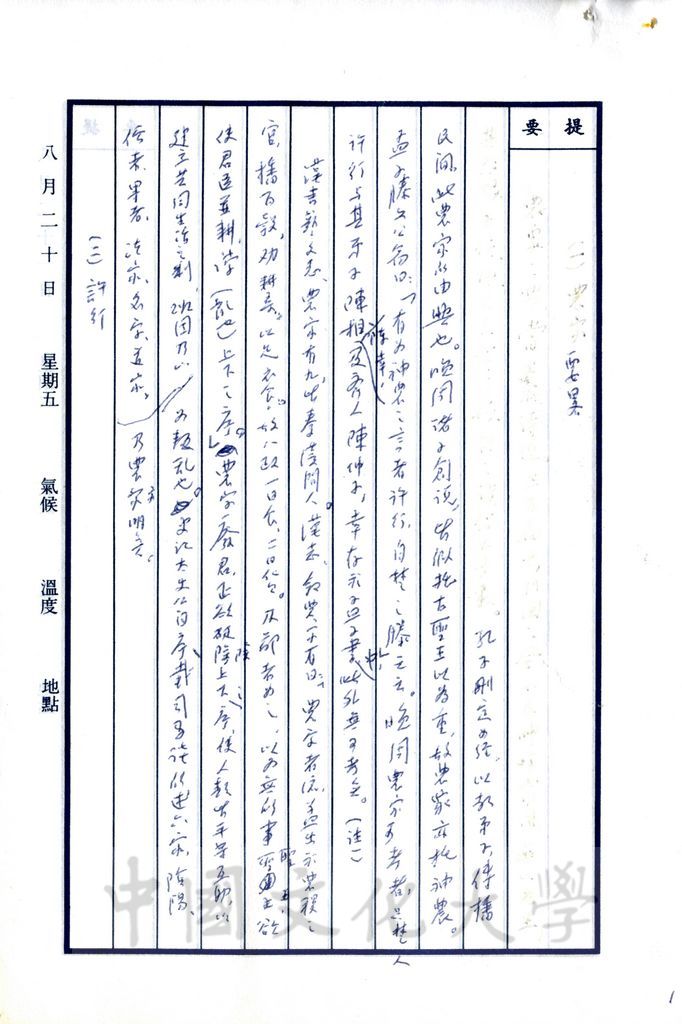 提要
(一) 農家要略
孔子刪定六經，以教弟子，傳播
民間，此農家所由興也。晚周諸子創說，皆依託古聖王以為重，故農家亦託神農。
孟子滕文公篇曰：「有為神農之言者許行，自楚之滕云云。晚周農家可考者，只楚人
許行與其弟子陳相、陳辛，及齊人陳仲子，幸存於孟子書中，此外無可考矣。(註一)
漢書藝文志，農家有九，皆秦漢間人。漢志敘農家有曰：「農家者流，蓋出於農稷之
官，播百穀，勸耕桑，以足衣食，故八政一曰食，二曰貨。及鄙者為之，以為無所事聖王，欲
使君臣並耕，誖(亂也)上下之序。」農家廢君，正欲破除上下之序，使人類皆平等互助，以
建立共同生活之制，班固乃以為類亂也。史記太史公自序，載司馬談所述六家，陰陽、
儒者、墨者、法家、名家、道家。乃農家亡明矣。
(二) 許行
八月二十日 星期五 氣候 溫度 地點
中國文化大學
1